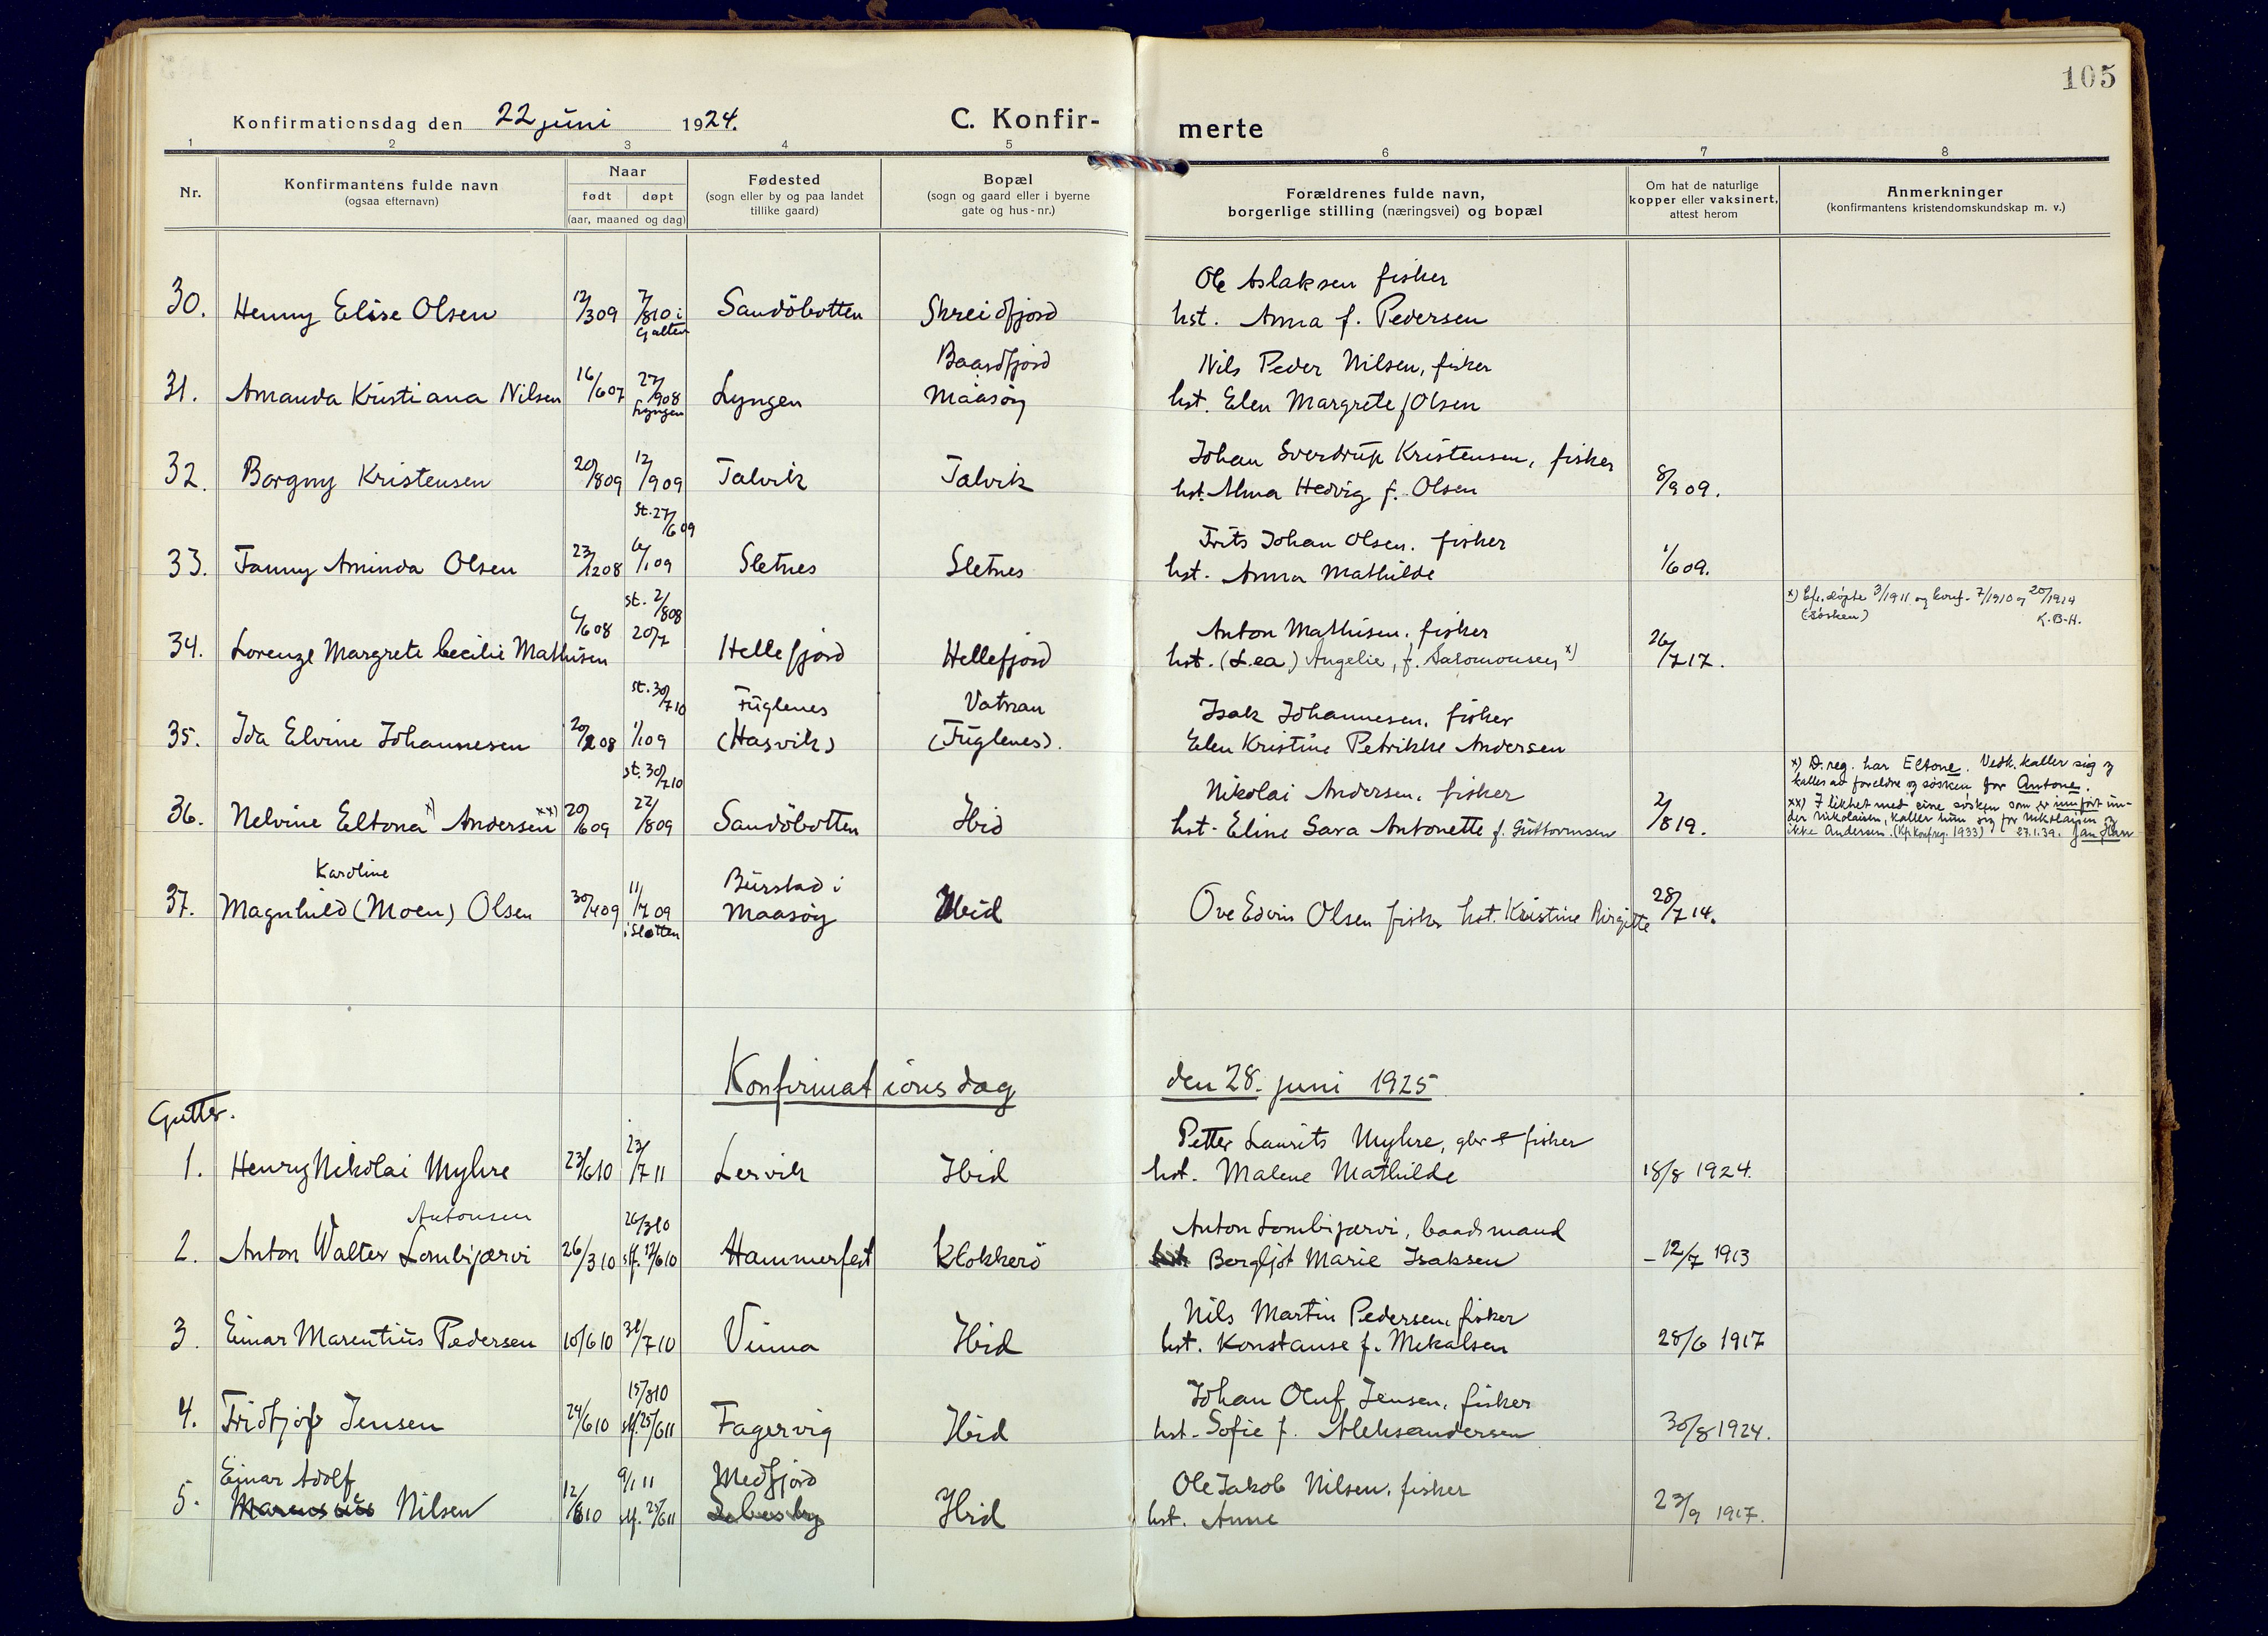 105
Konfirmationsdag den 22 juni 1924.
C. Konfirmerte
1 2 3 4 5 6 7 8
Nr.
Konfirmantens fulde navn
(ogsaa efternavn)
Naar
født døpt
(aar, maaned og dag)
Fødested
(sogn eller by og paa landet
tillike gaard)
Bopæl
(sogn og gaard eller i byerne
gate og hus-nr.)
Forældrenes fulde navn,
borgerlige stilling (næringsvei) og bopæl
Om hat de naturlige
kopper eller vaksinert,
attest herom
Anmerkninger
(konfirmantens kristendomskundskap m. v.)
Ole Aslaksen fisker
30. Henny Elise Olsen 12/3 09 7/8 10 i Galten Sandöbotten Skreidfjord hst. Anna f. Pedersen
Baardfjord Nils Peder Nilsen, fisker
31. Amanda Kristiana Nilsen 16/6 07 27/9 08 Lyngen Lyngen Maasöy hst. Elen Margrete f Olsen
Johan Sverdrup Kristensen, fisker
32. Borgny Kristensen 20/8 09 12/9 09 Talvik Talvik hst. Alma Hedvig f. Olsen 8/9 09.
st. 27/6 09 Frits Johan Olsen. fisker
33. Fanny Aminda Olsen 23/12 08 6/1 09 Sletnes Sletnes hst. Anna Mathilde 1/6 09.
st. 2/8 08 Anton Mathisen. fisker x) Efr. døpte 3/1911 og konf. 7/1910 og 20/1914
(søsken) K.B.H.
34. Lorenze Margrete Cecilie Mathisen 6/6 08 20/7 Hellefjord Hellefjord hst. (Lea) Angelie, f. Salomonsen x) 26/7 17.
st. 30/7 10 Fuglenes Vatnan Isak Johannesen. fisker
35. Ida Elvine Johannesen 20/2 08 1/1 09 (Hasvik) (Fuglenes). Elen Kristine Petrikke Andersen
st. 30/7 10 Nikolai Andersen. fisker
36. Nelvine Eltona x) Andersen xx) 20/6 09 22/8 09 Sandöbotten Ibid hst. Eline Sara Antonette f. Guttormsen 2/8 19.
x) D.reg. har Eltone. Vedk. kaller sig og
kalles av foreldre og søsken for Antone.
xx) I likhet med sine søsken som er innført un-
der Nikolaisen, kaller hun sig for Nikolaisen og
ikke Andersen. (Kfr. konf.reg. 1933) 27.1.39.
Karoline Burstad i
37. Magnhild (Moen) Olsen 30/4 09 11/7 09 i Sletten Maasöy Ibid Ove Edvin Olsen fisker hst. Kristine Birgitte 28/7 14.
Konfirmationsdag den 28. juni 1925
Gutter.
Petter Laurits Myhre, gbr & fisker
1. Henry Nikolai Myhre 23/6 10 23/7 11 Lervik Ibid hst. Malene Mathilde 18/8 1924.
Antonsen 26/3 10 Anton Lombijærvi, baadsmand
2. Anton Walter Lombijærvi 26/3 10 stf. 12/6 10 Hammerfest Klokkerö hst Bergljot Marie Isaksen - 12/7 1913
Nils Martin Pedersen, fisker
3. Einar Marentius Pedersen 10/6 10 31/7 10 Vinna Ibid hst. Konstanse f. Mikalsen 28/6 1917
15/8 10 Johan Oluf Jensen. fisker
4. Fridtjof Jensen 24/6 10 stf. 25/6 11 Fagervig Ibid hst. Sofie f. Aleksandersen 30/8 1924.
Einar Adolf 9/1 11 Medfjord Ole Jakob Nilsen. fisker
5. Nilsen 12/8 10 stf. 25/6 11 Lebesby Ibid hst. Anne 23/9 1917.